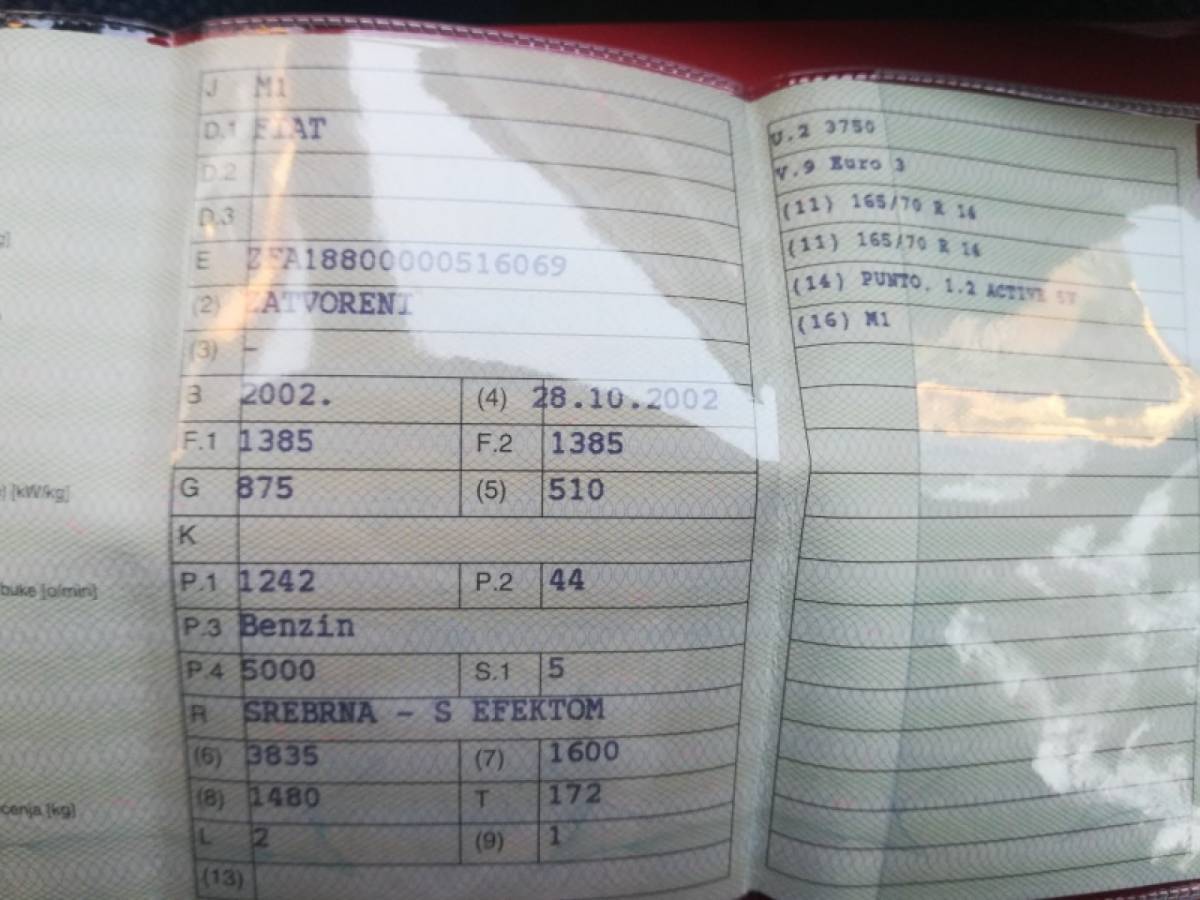 J M1
D.1 FIAT
D.2
D.3
E ZFA18800000516069
(2) ZATVORENI
(3) -
B 2002. (4) 28.10.2002
F.1 1385 F.2 1385
G 875 (5) 510
K
P.1 1242 P.2 44
P.3 Benzin
P.4 5000 S.1 5
R SREBRNA - S EFEKTOM
(6) 3835 (7) 1600
(8) 1480 T 172
L 2 (9) 1
(13)
U.2 3750
V.9 Euro 3
(11) 165/70 R 14
(11) 165/70 R 14
(14) PUNTO, 1.2 ACTIVE 5V
(16) M1
g]
[kW/kg]
buke [o/min]
[kg]